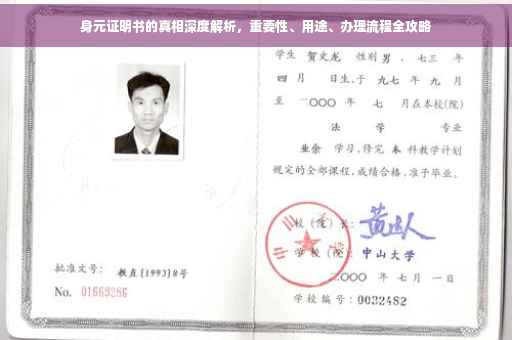 身元证明书的真相深度解析，重要性、用途、办理流程全攻略
学生 贺文龙 性别 男 、七三 年
四 月 日生，于 九七 年 九 月
至 二〇〇〇 年 七 月在本校(院)
法 学 专业
业余 学习，修完 本 科教学计划
规定的全部课程，成绩合格，准予毕业。
校 (院) 长：
学 校 (院)： 中山大学
二〇〇〇 年 七 月 一 日
批准文号： 教直(1993)8号
No. 01669286
学校编号：0032482